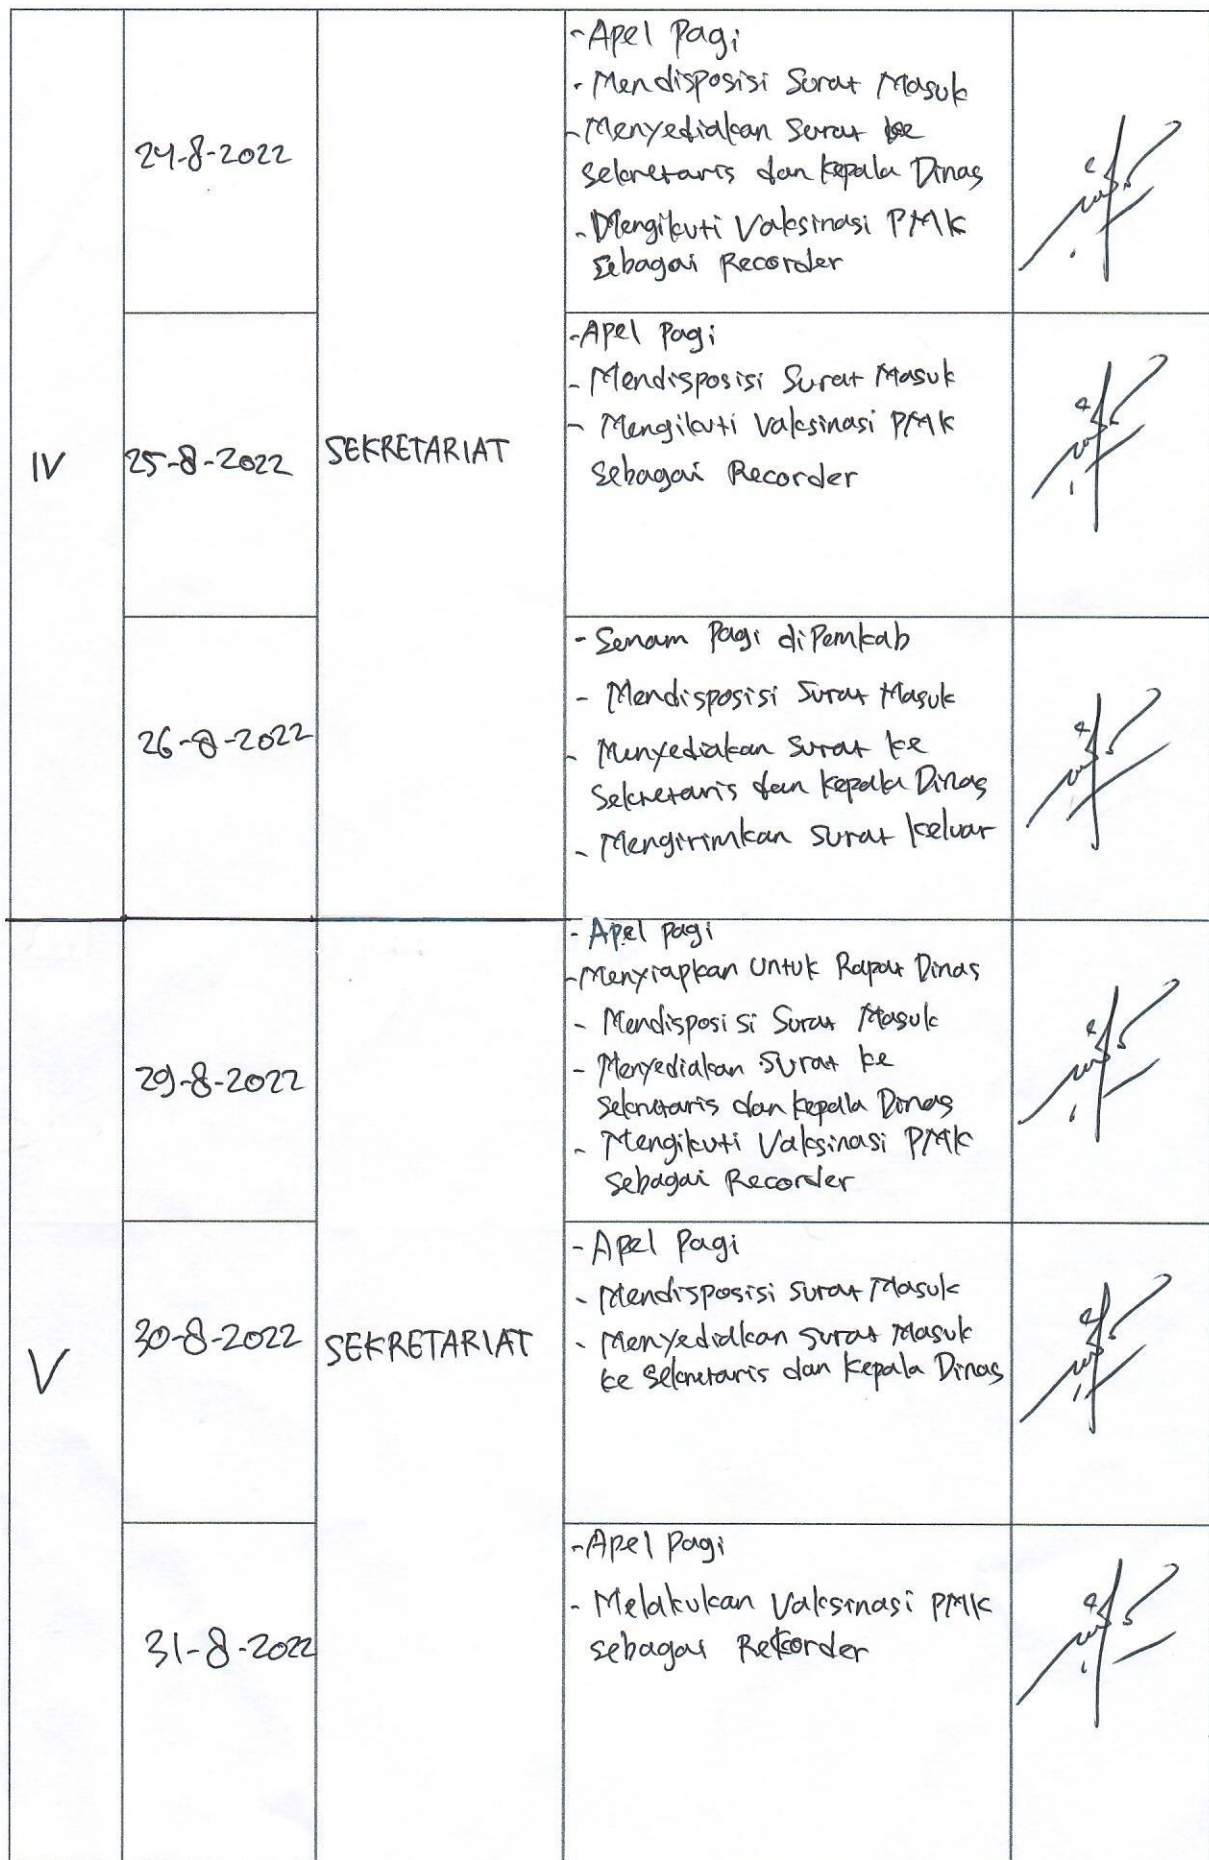 24-8-2022
- Apel Pagi
- Mendisposisi Surat Masuk
- Menyediakan Surat ke
Sekretaris dan Kepala Dinas
- Mengikuti Vaksinasi PMK
Sebagai Recorder
IV
25-8-2022
SEKRETARIAT
- Apel Pagi
- Mendisposisi Surat Masuk
- Mengikuti Vaksinasi PMK
Sebagai Recorder
26-8-2022
- Senam Pagi di Pemkab
- Mendisposisi Surat Masuk
- Menyediakan Surat ke
Sekretaris dan Kepala Dinas
- Mengirimkan Surat keluar
29-8-2022
- Apel pagi
- Menyiapkan Untuk Rapat Dinas
- Mendisposisi Surat Masuk
- Menyediakan Surat ke
Sekretaris dan Kepala Dinas
- Mengikuti Vaksinasi PMK
Sebagai Recorder
V
30-8-2022
SEKRETARIAT
- Apel Pagi
- Mendisposisi Surat Masuk
- Menyediakan Surat Masuk
ke Sekretaris dan Kepala Dinas
31-8-2022
- Apel Pagi
- Melakukan Vaksinasi PMK
sebagai Rekorder